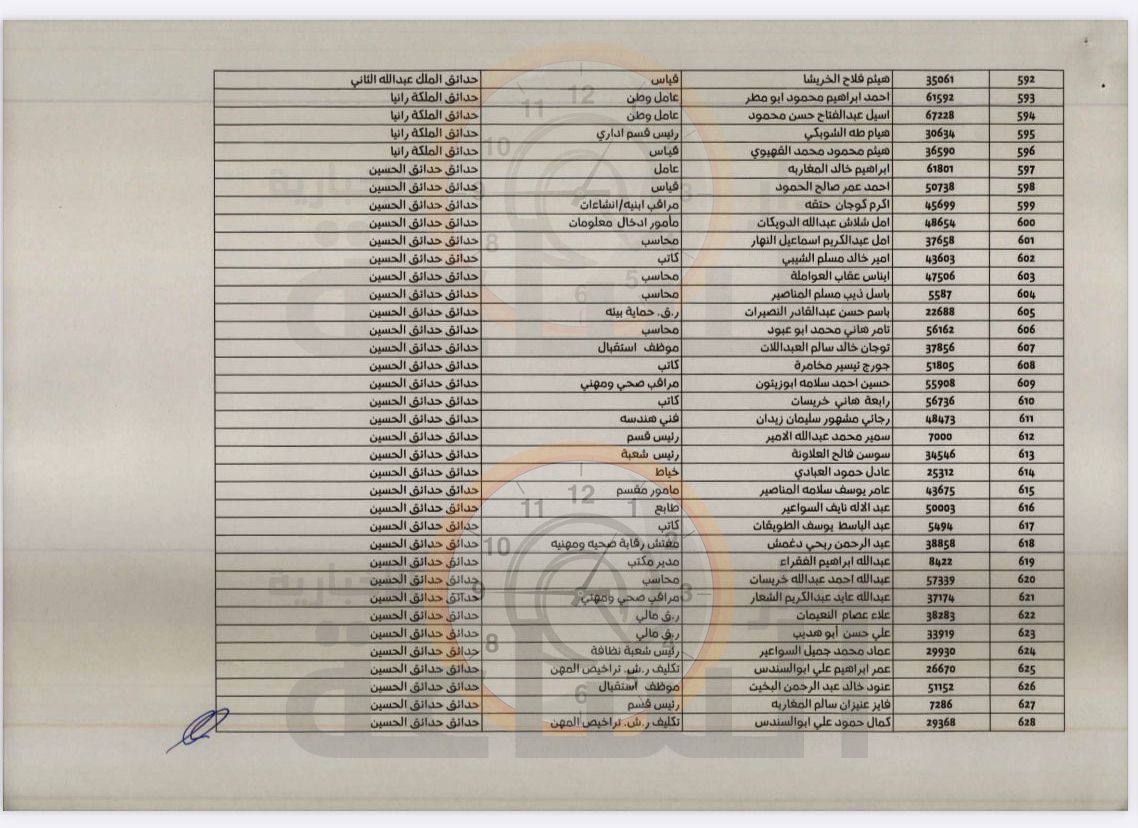 592 35061 هيثم فلاح الخريشا قياس حدائق الملك عبدالله الثاني
593 61592 احمد ابراهيم محمود ابو مطر عامل وطن حدائق الملكة رانيا
594 67228 اسيل عبدالفتاح حسن محمود عامل وطن حدائق الملكة رانيا
595 30634 هيام طه الشوبكي رئيس قسم اداري حدائق الملكة رانيا
596 36590 هيثم محمود محمد القهيوي قياس حدائق الملكة رانيا
597 61801 ابراهيم خالد المغاربه عامل حدائق حدائق الحسين
598 50738 احمد عمر صالح الحمود قياس حدائق حدائق الحسين
599 45699 اكرم كوجان حتقه مراقب ابنيه/انشاءات حدائق حدائق الحسين
600 48654 امل شلاش عبدالله الدويكات مأمور ادخال معلومات حدائق حدائق الحسين
601 37658 امل عبدالكريم اسماعيل النهار محاسب حدائق حدائق الحسين
602 43603 امير خالد مسلم الشيبي كاتب حدائق حدائق الحسين
603 47506 ايناس عقاب العواملة محاسب حدائق حدائق الحسين
604 5587 باسل ذيب مسلم المناصير محاسب حدائق حدائق الحسين
605 22688 باسم حسن عبدالقادر النصيرات ر.ق. حماية بيئه حدائق حدائق الحسين
606 56162 تامر هاني محمد ابو عبود محاسب حدائق حدائق الحسين
607 37856 توجان خالد سالم العبداللات موظف استقبال حدائق حدائق الحسين
608 51805 جورج تيسير مخامرة كاتب حدائق حدائق الحسين
609 55908 حسين احمد سلامه ابوزيتون مراقب صحي ومهني حدائق حدائق الحسين
610 56736 رابعة هاني خريسات كاتب حدائق حدائق الحسين
611 48473 رجائي مشهور سليمان زيدان فني هندسه حدائق حدائق الحسين
612 7000 سمير محمد عبدالله الامير رئيس قسم حدائق حدائق الحسين
613 34546 سوسن فالح العلاونة رئيس شعبة حدائق حدائق الحسين
614 25312 عادل حمود العبادي خياط حدائق حدائق الحسين
615 43675 عامر يوسف سلامه المناصير مامور مقسم حدائق حدائق الحسين
616 50003 عبد الاله نايف السواعير طابع حدائق حدائق الحسين
617 5494 عبد الباسط يوسف الطويقات كاتب حدائق حدائق الحسين
618 38858 عبد الرحمن ربحي دغمش مفتش رقابة صحيه ومهنيه حدائق حدائق الحسين
619 8422 عبدالله ابراهيم الفقراء مدير مكتب حدائق حدائق الحسين
620 57339 عبدالله احمد عبدالله خريسات محاسب حدائق حدائق الحسين
621 37174 عبدالله عايد عبدالكريم الشعار مراقب صحي ومهني حدائق حدائق الحسين
622 38283 علاء عصام النعيمات ر.ق مالي حدائق حدائق الحسين
623 33919 علي حسن أبو هديب ر.ق مالي حدائق حدائق الحسين
624 29930 عماد محمد جميل السواعير رئيس شعبة نظافة حدائق حدائق الحسين
625 26670 عمر ابراهيم علي ابوالسندس تكليف ر.ش. تراخيص المهن حدائق حدائق الحسين
626 51152 عنود خالد عبد الرحمن البخيت موظف استقبال حدائق حدائق الحسين
627 7286 فايز عنيزان سالم المغاربه رئيس قسم حدائق حدائق الحسين
628 29368 كمال حمود علي ابوالسندس تكليف ر.ش. تراخيص المهن حدائق حدائق الحسين